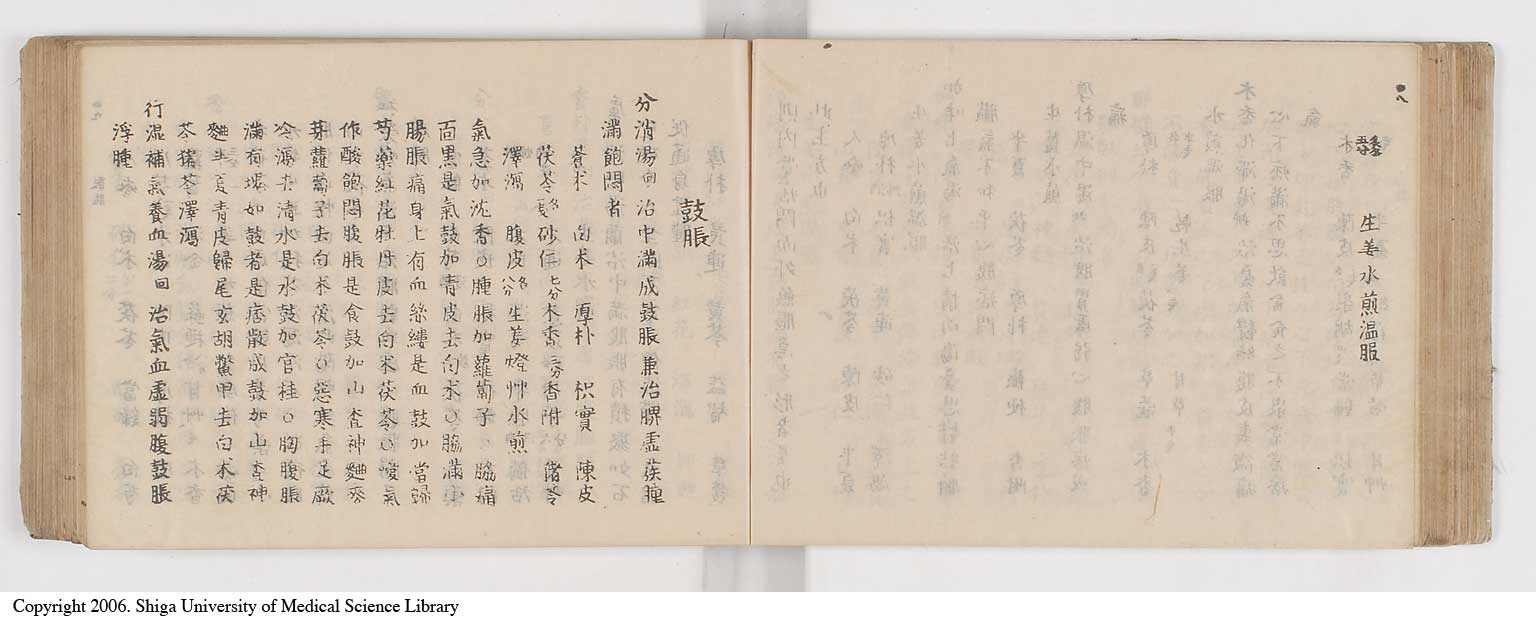 生姜水煎温服
鼓脹
分消湯回 治中滿成鼓脹兼治脾虚發腫
滿飽悶者
蒼朮 白朮 厚朴 枳實 陳皮
茯苓 砂仁七分 木香三分 香附 猪苓
澤瀉 腹皮 生姜燈艸水煎
氣急加沈香○腫脹加蘿蔔子○脇痛
面黒是氣鼓加青皮去白朮○脇滿小
腸脹痛身上有血絲縷是血鼓加當歸
芍藥紅花牡丹皮去白朮茯苓○噯氣
作酸飽悶腹脹是食鼓加山査神麯麥
芽蘿蔔子去白朮茯苓○惡寒手足厥
冷瀉去清水是水鼓加官桂○胸腹脹
滿有塊如鼓者是痞散成鼓加山査神
麯半夏青皮歸尾玄胡鱉甲去白朮茯
苓猪苓澤瀉
行湿補氣養血湯回 治氣血虚弱腹鼓脹
浮腫
Copyright 2006. Shiga University of Medical Science Library